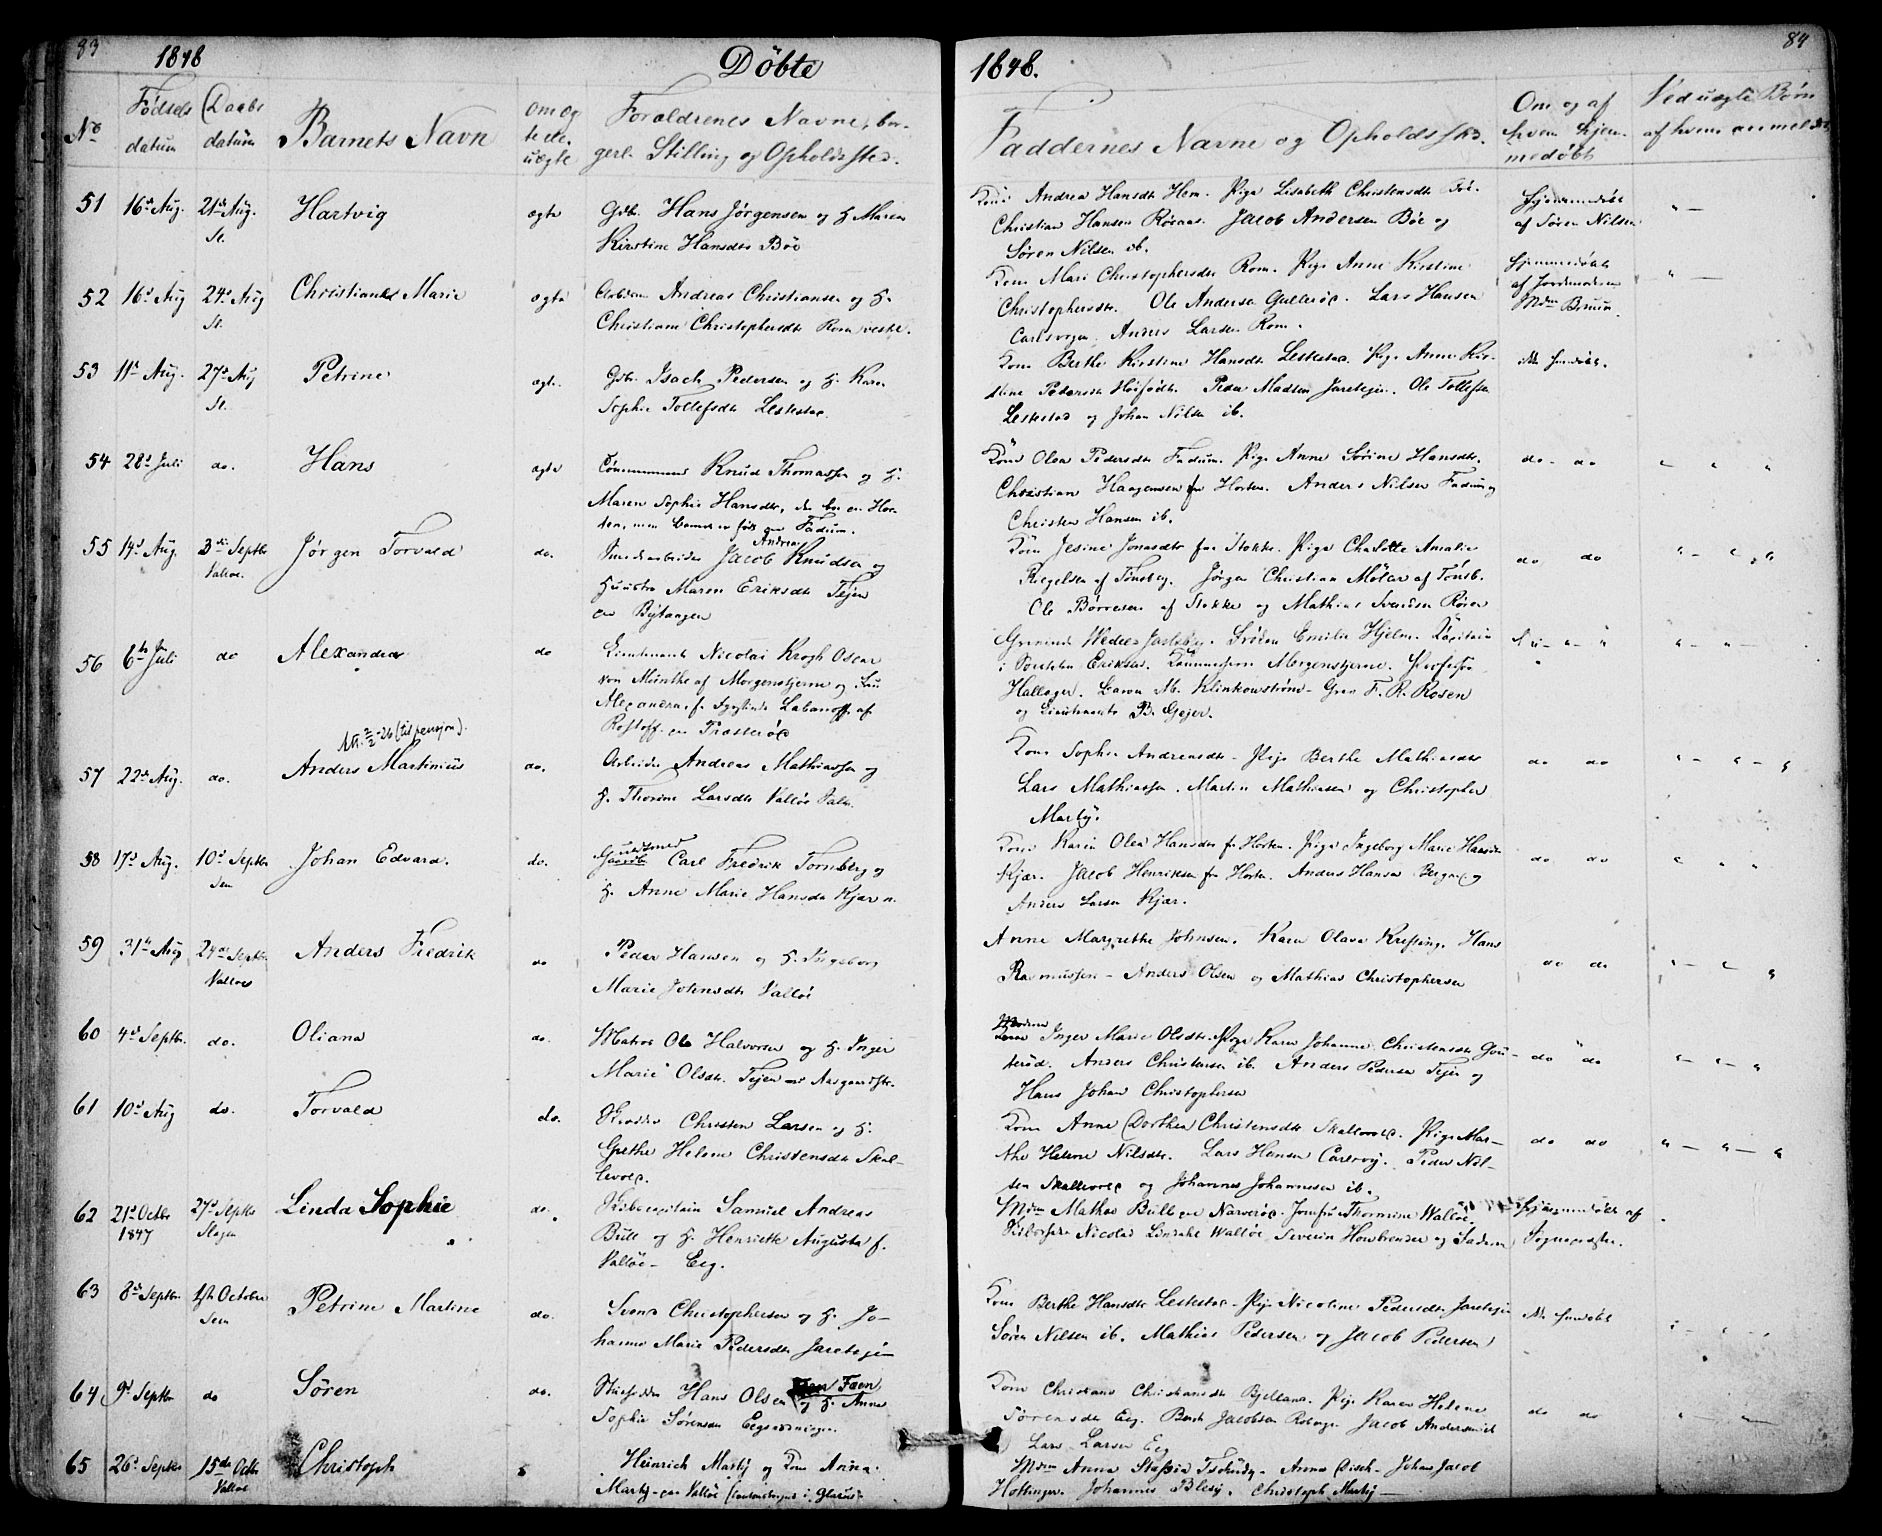 83
1848
Döbte
1848.
84
No
Födsels datum
Daabs datum
Barnets Navn
om ægte ell. uægte
Forældrenes Navne, borgerl. Stilling og Opholdssted.
Faddernes Navne og Opholdssted.
Om og af hvem hjemmedöbt
Ved uægte Børn af hvem anmeldt
51 16de Aug. 21de Aug. Hartvig ægte Gdb. Hans Jörgensen og H. Maren
Sl.
Kirstine Hansdtr Böe
Kone Andrea Hansdtr Hem. Pige Lisabeth Christensdtr
Christian Hansen Röeraas. Jacob Andersen Böe og
Sören Nilsen ib.
Hjemmedöbt
af Sören Nilsen
52 16de Aug 24de Aug Christiane Marie ægte Arbeider Andreas Christiansen og H.
Sl.
Christiane Christophersdtr Rom vestre.
Kone Mari Christophersdtr Rom. Pige Anne Kirstine
Christophersdtr. Ole Andersen Gulleröe. Lars Hansen
Carlsvogn. Anders Larsen Rom.
Hjemmedöbt
af Jordemoderen
Mdm Bruun.
53 11te Aug. 27de Aug Petrine ægte. Gdb. Isach Pedersen og H. Karen
Sl.
Sophie Tollefsdtr Lestestad.
Kone Berthe Kirstine Hansdtr Lestestad. Pige Anne Kir-
stine Pedersdtr. Peder Madsen Jareteigen. Ole Tollefsen
Lestestad og Johan Nilsen ib.
ikke hjemdöbt.
54 28de Juli do. Hans ægte Knud Thomassen og H.
Maren Sophie Hansdtr, der bor i Hor-
ten, men Barnet er födt paa Fadum.
Kone Olea Pedersdtr Fadum. Pige Anne Sörine Hansdtr.
Christian Haagensen fra Horten. Anders Nilsen Fadum og
Christen Hansen ib.
do - do
55 14de Aug. 3die Septbr Jörgen Torvald do. Smedearbeider Jacob Andreas Knudsen og
Valløe.
Huustro Maren Eriksdtr Tejen
paa Bytangen
Kone Jesine Jonasdtr fra Stokke. Pige Charlotte Amalie
Riegelsen af Tönsberg. Jörgen Christian Möller af Tönsb.
Ole Börresen af Stokke og Mathias Svendsen Rören
do do
56 6te Juli do Alexandra do Lieutenant Nicolai Krogh Oscar
von Munthe af Morgenstjerne og Fru
Alexandra f. Labanoff af
Rostoff paa Præsteröe
Grevinde Wedel Jarlsberg. Fröken Emilie Hjelm. Kapitain
Eriksen. Morgenstjerne. Professor
Hallager. Baron M. Klinkowström - Grev F. R. Rosen
og Lieutenant B. Gejer.
Att. 2/2-26 (til pensjon).
57 22de Aug. do. Anders Martinius do. Arbeider Andreas Mathiassen og
H. Thorine Larsdtr Valløe Salin.
Kone Sophie Andreasdtr - Pige Berthe Mathiasdtr
Lars Mathiassen. Martin Mathiasen og Christopher
Martÿ.
do do
58 17de Aug. 10de Septbr Johan Edvard. do. Huusmand Carl Fredrik Tornberg og
Sem
H. Anne Marie Hansdtr Kjær n.
Kone Karen Olea Hansdtr fra Horten. Pige Ingeborg Marie Hansdtr
Kjær. Jacob Henriksen fra Horten. Anders Hansen Berger og
Anders Larsen Kjær.
do do
59 31te Aug 24de Septbr Anders Fredrik do Peder Hansen og H. Ingeborg
Valløe
Marie Johnsdtr Valløe
Anne Margrethe Johnsen. Karen Olava Kressing. Hans
Rasmussen - Anders Olsen og Mathias Christophersen
do do
60 4de Septbr. do. Oliana do. Matros Ole Halvorsen og H. Inger
Marie Olsdtr. Tejen
Moderen Inger Marie Olsdtr. Pige Karen Johanne Christensdtr Gou-
teröd. Anders Christensen ib. Anders Pedersen Tejen og
Hans Johan Christophersen
do do
61 10de Aug do. Torvald do. Skrædder Christen Larsen og H.
Grethe Helene Christensdtr Skal-
levold.
Kone Anne Dorthea Christensdtr Skallevold. Pige Mar-
the Helene Nilsdtr. Lars Hansen Carlsvog. Peder Niel-
sen Skallevold og Johannes Johannesen ib.
do do
62 21de Octbr 27de Septbr Linda Sophie do. Skibscapitain Samuel Andreas
1847 Slagen
Bull og H. Henriette Augusta f.
Valløe - Eeg.
Mdm Mathea Bull paa Narveröe. Jomfru Thomine Walløe.
Nicolai Walløe, Severin og Faderen
Hjemmedöbt af
Sognepræsten.
63 8de Septbr 1ste October Petrine Martine do. Svend Christophersen og H. Jo-
Sem
hanne Marie Pedersdtr Jareteigen
Kone Berthe Hansdtr Lestestad - Pige Nicoline Pedersdtr Jareteigen
Sören Nilsen ib. Mathias Pedersen og Jacob Pedersen
ikke hjemdöbt
64 9de Septbr do Sören do. Hans Olsen Faen
og H. Anne
Sophie Sörensdtr
Kone Christiane Christiansdtr Bjelland. Pige Karen Helene
Sörensdtr Eeg. Bernt Jacobsen Roberg. Jacob Andersen ib
Lars Larsen Eeg
do do
65 26de Septbr 15de Octbr Christoph Heinrich Martÿ og Kone Anna
Valløe
Martÿ - paa Valløe i Glarus
Mdm Anna Tschudy - Anna Disch - Johan Jacob
Hottinger. Johannes Blesÿ. Christoph Martÿ -